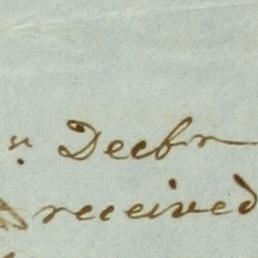 Decbr
received